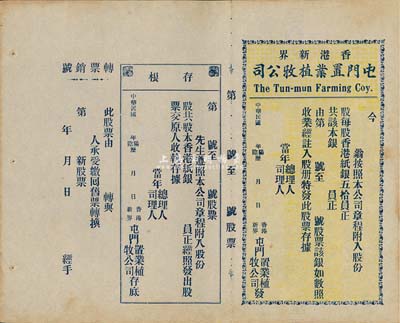 香港新界
屯門置業植牧公司
The Tun-mun Farming Coy.
今
翁按照本公司章程附入股份
股每股香港紙銀五拾員正
共該本銀 員正
由第 號至 號股票該銀如數照
收業經註入股册特發此股票存據
總理人
當年司理人
中華民國 年 陽陰歷 月 日
香港新界屯門置業植牧公司發
第 號至 號股票
存根
第 號至 號股票
先生遵照本公司章程附入股份
股共股本香港紙銀 員正經照發出股
票交原人收執存據
總理人
當年司理人
中華民國 年 陽陰歷 月 日
香港新界屯門置業植牧公司存底
此股票由 轉與
人承受繳回舊票轉換
第 號新股票
年 月 日 經手
轉票銷號